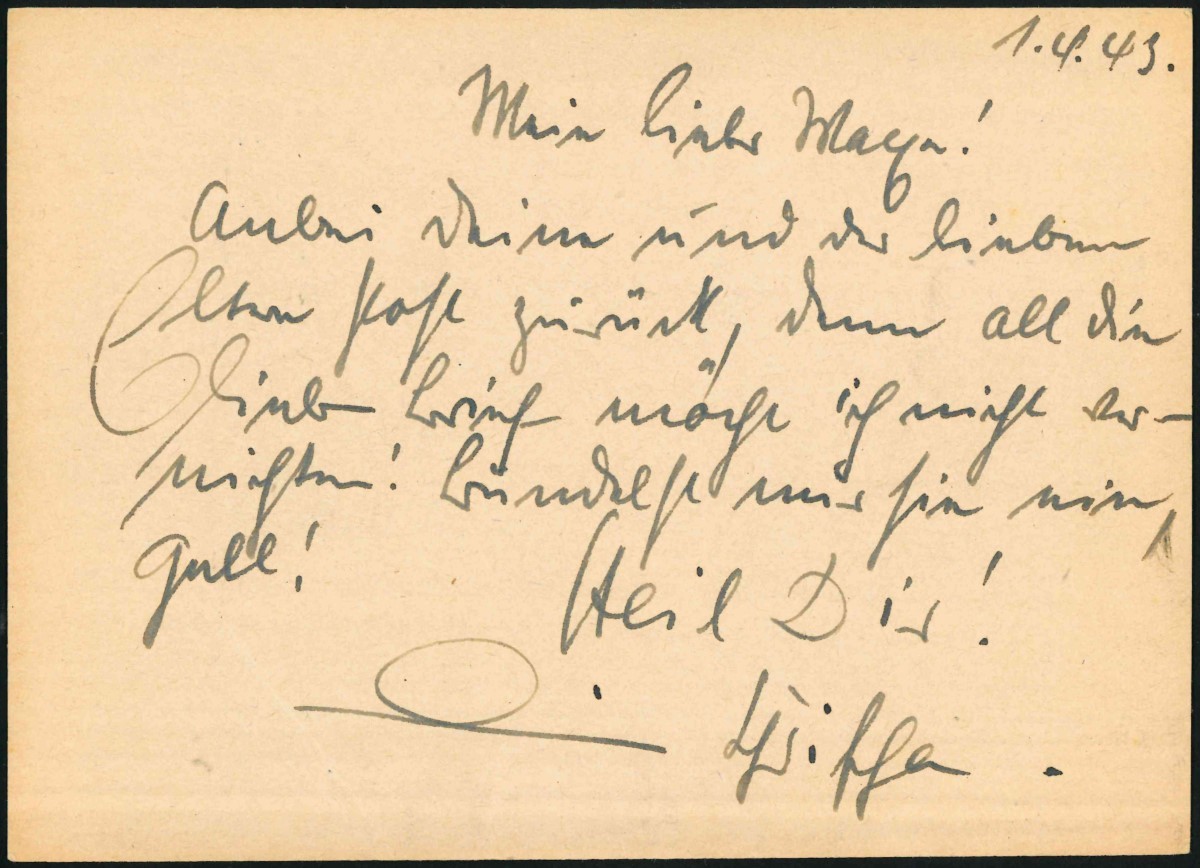 1.4.43.
Mein lieber
Anbei deine und der lieben
Eltern Post zurück, denn all die
lieben Briefe möchte ich nicht ver-
nichten! Bündelst mir sie ein,
Gell!
Heil Dir!